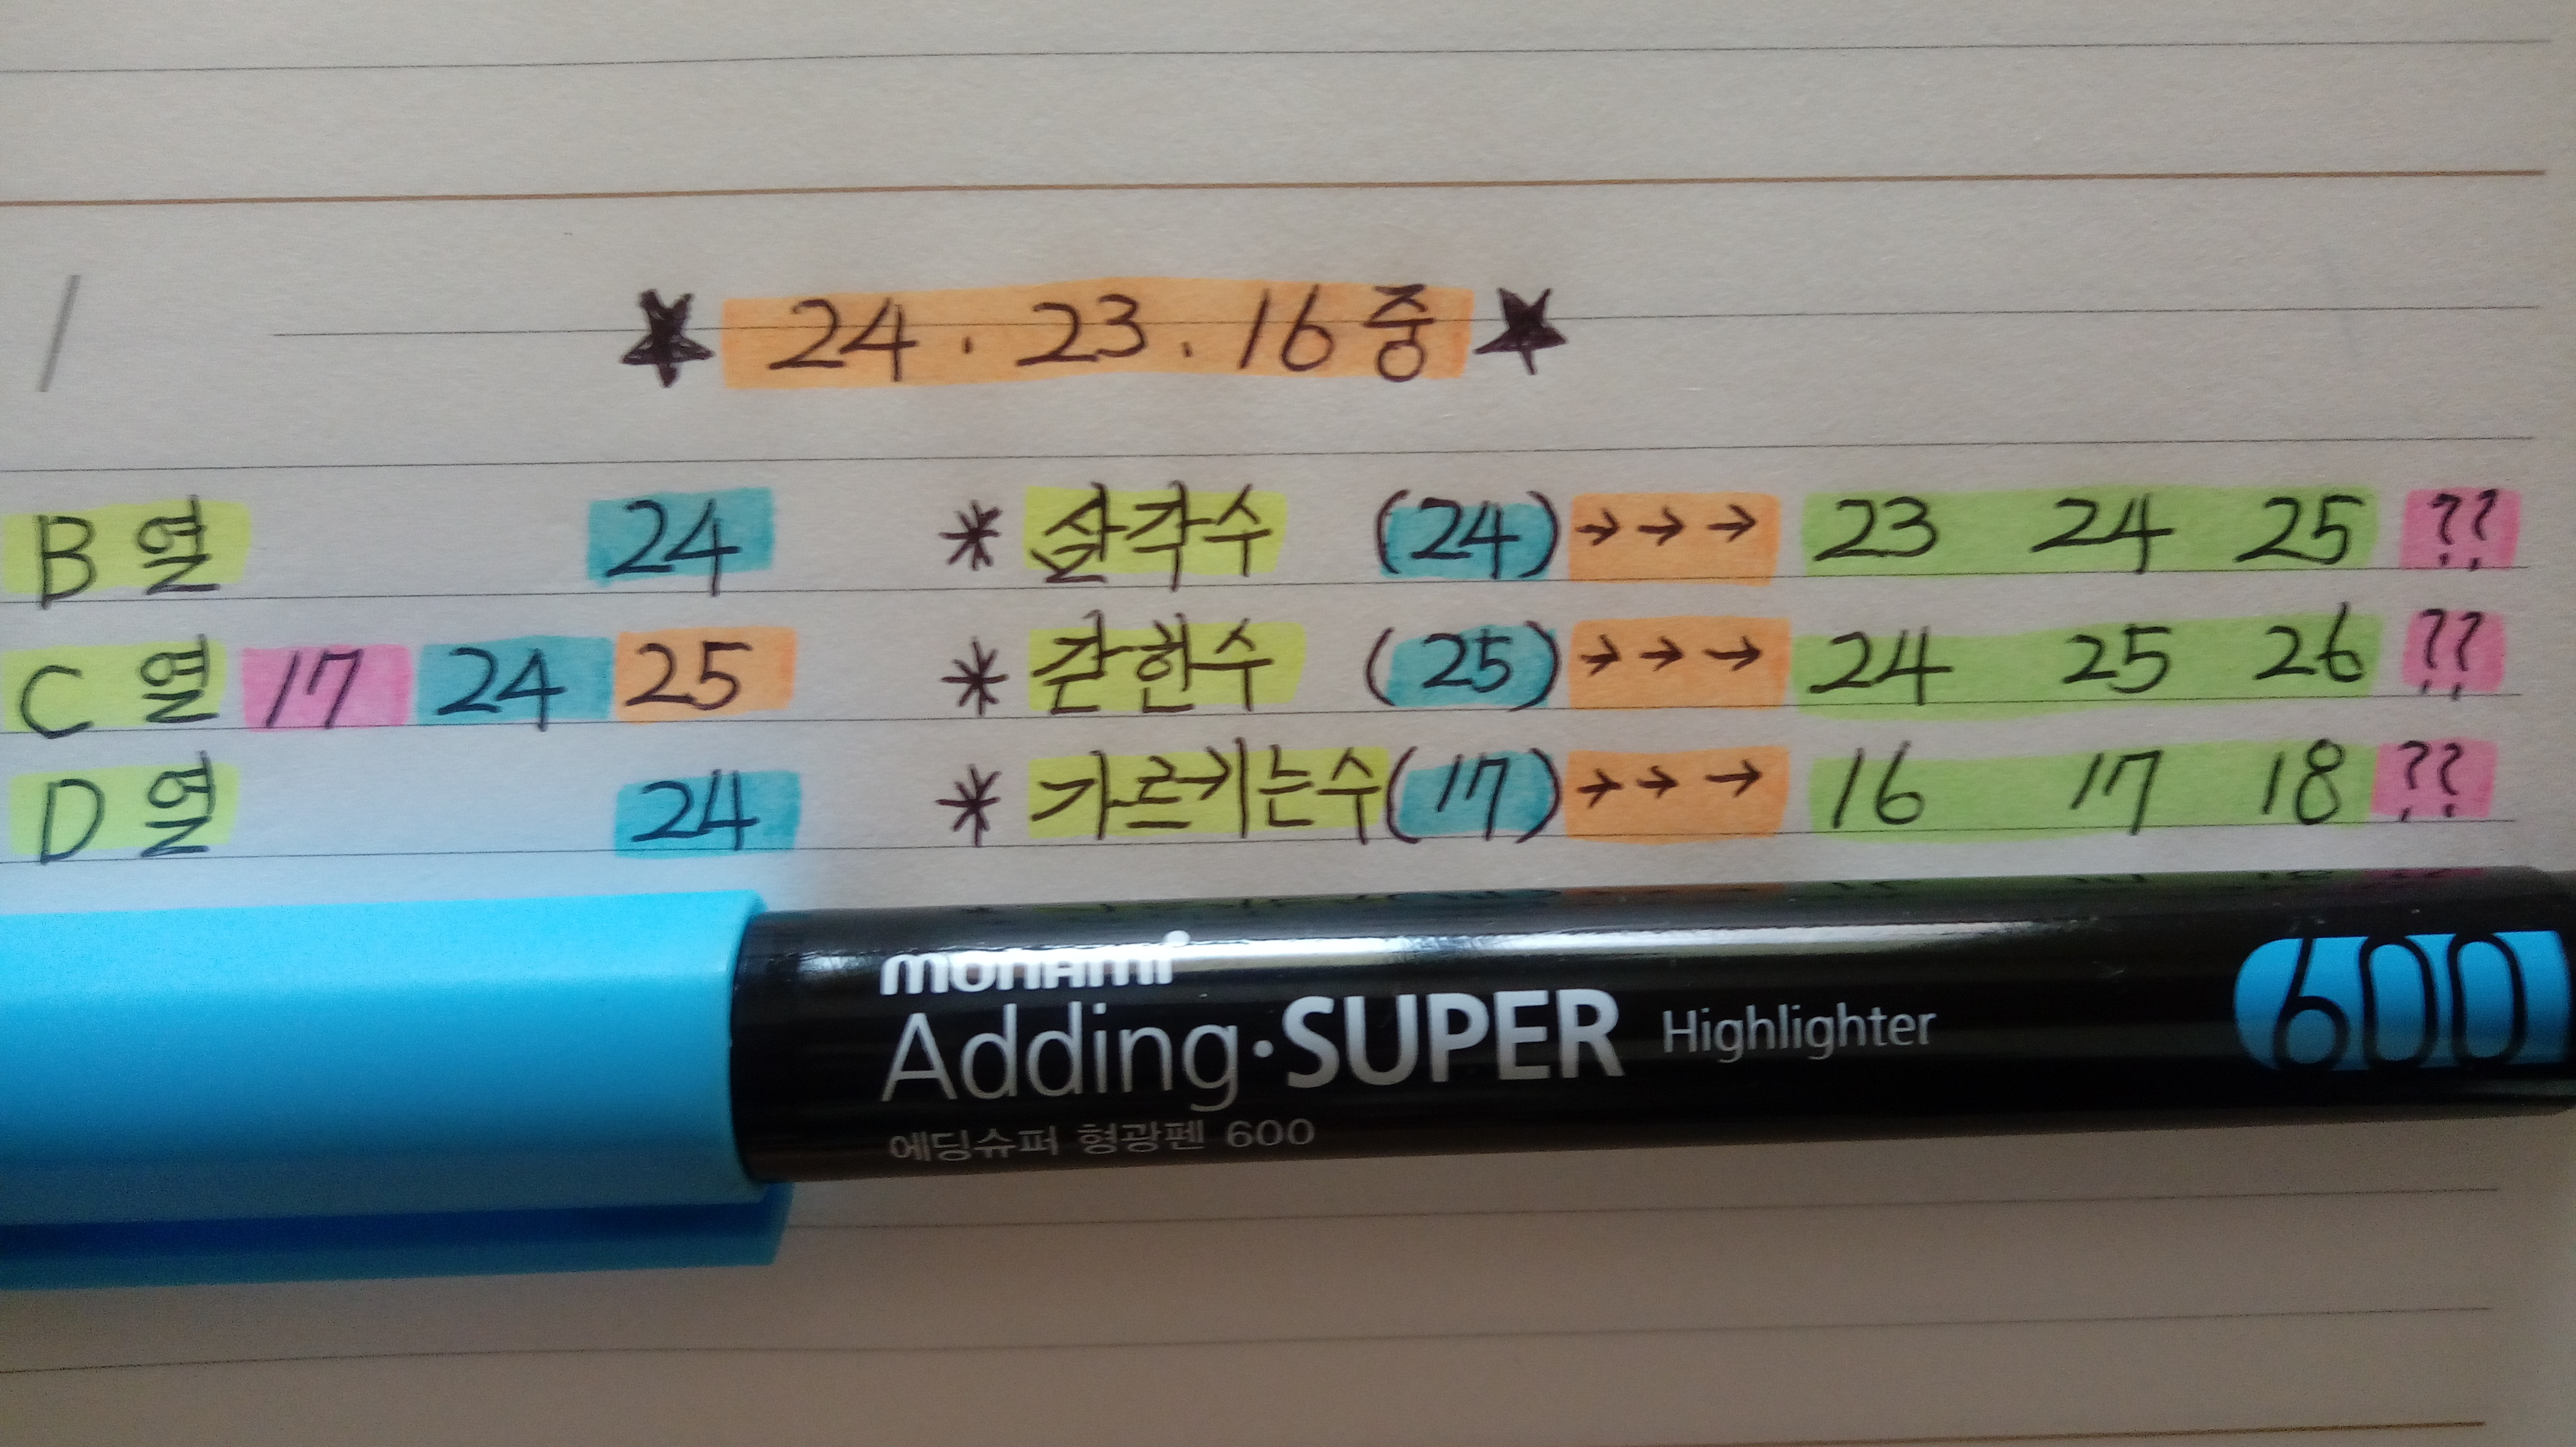 ★ 24 . 23 . 16 중 ★
B 열 24 * 삼각수 (24) →→→ 23 24 25 ??
C 열 17 24 25 * 갇힌수 (25) →→→ 24 25 26 ??
D 열 24 * 가르키는수 (17) →→→ 16 17 18 ??
monami
Adding·SUPER Highlighter 600
에딩슈퍼 형광펜 600